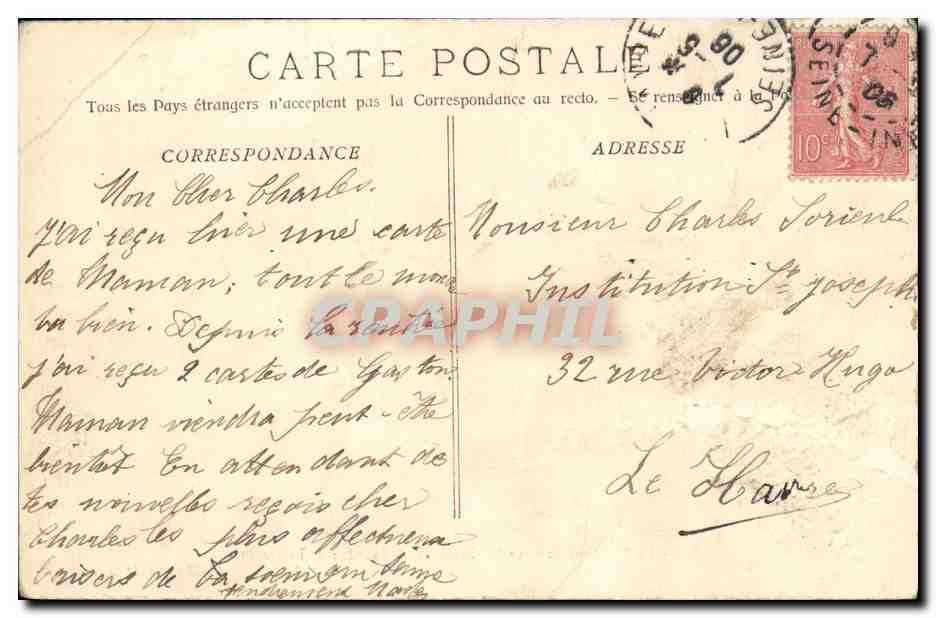 CARTE POSTALE
Tous les Pays étrangers n'acceptent pas la Correspondance au recto. — Se renseigner à la Po
CORRESPONDANCE
Mon Cher Charles.
J'ai reçu hier une carte
de Maman, tout le mon
va bien. Depuis la rentrée
j'ai reçu 2 cartes de Gaston
Maman viendra peut-être
bientôt En attendant de
tes nouvelles reçois cher
Charles les plus affectueux
baisers de ta soeur qui t'aime
tendrement
ADRESSE
Monsieur Charles
Institution St Joseph
32 rue Victor Hugo
Le Havre
10c
SEINE
SEINE-IN
CPAPHIL